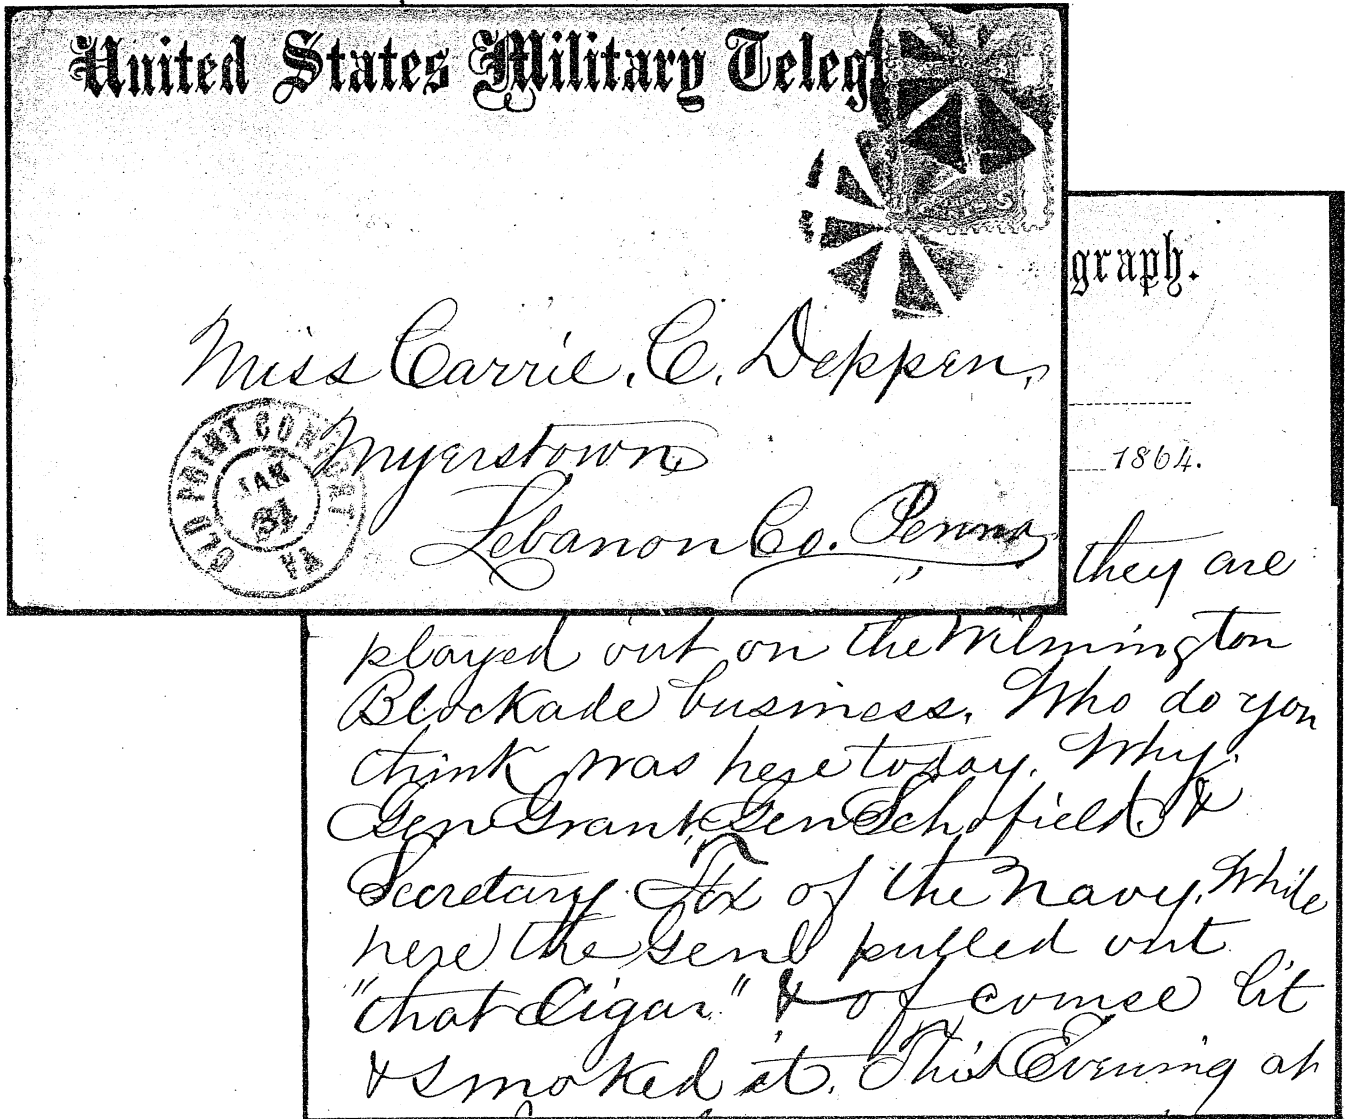 United States Military Teleg
Miss Carrie. C. Deppen,
Myerstown
Lebanon Co. Penna
OLD POINT COMFORT
JAN
31
VA
graph.
1864.
they are
played out on the Wilmington
Blockade business. Who do you
think was here today. Why.
Gen Grant, Gen Schofield. &
Secretary Fox of the Navy. While
here the Genl pulled out
"that Cigar" & of course lit
& smoked it. This Evening at